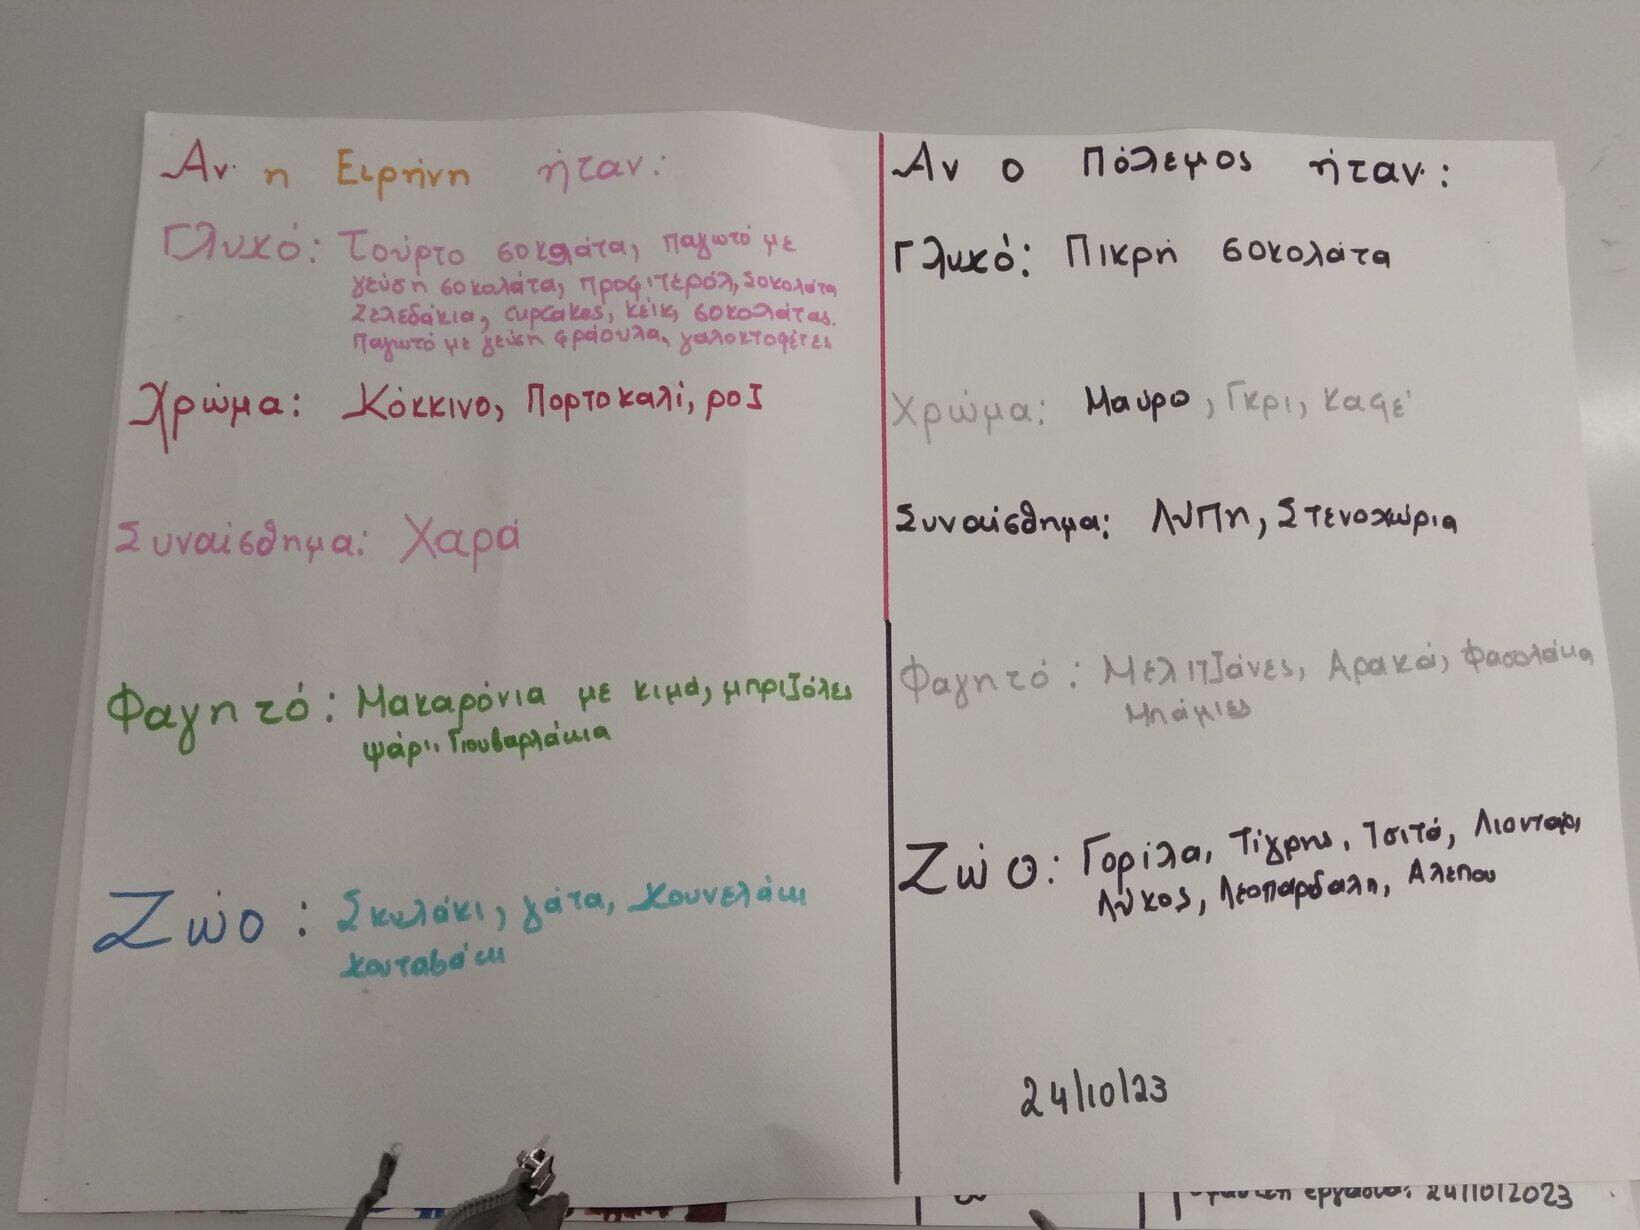 Αν η Ειρήνη ήταν:
Γλυκό: Τούρτο σοκολάτα, παγωτό με
γεύση σοκολάτα, προφιτερόλ, Σοκολάτα
Ζελεδάκια, cupcakes, κέικ, σοκολάτας.
Παγωτό με γεύση φράουλα, γαλοκτοφέτες
Χρώμα: Κόκκινο, Πορτοκαλί, ροζ
Συναίσθημα: Χαρά
Φαγητό: Μακαρόνια με κιμά, μπριζόλες
ψάρι. Γιουβαρλάκια
Ζώο: Σκυλάκι, γάτα, κουνελάκι
κουταβάκι
Αν ο Πόλεμος ήταν:
Γλυκό: Πικρή σοκολάτα
Χρώμα: Μαύρο, Γκρι, καφέ
Συναίσθημα: Λύπη, Στενοχώρια
Φαγητό: Μελιτζάνες, Αρακά, Φασολάκια
Μπάμιες
Ζώο: Γορίλα, Τίγρης, Τσιτά, Λιοντάρι,
Λύκος, Λεοπάρδαλη, Αλεπου
24/10/23
εργασία: 24/10/2023